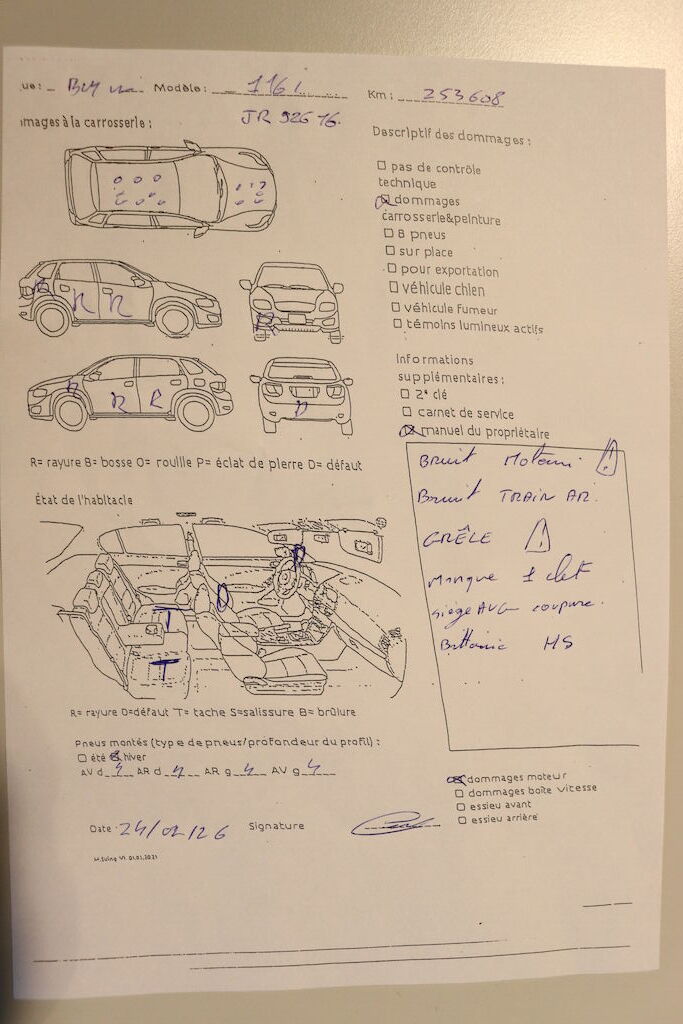 ue: BMW Modèle: 116i Km: 253608
mages à la carrosserie: JR 926 16.
Descriptif des dommages:
☐ pas de contrôle
technique
☒ dommages
carrosserie&peinture
☐ 8 pneus
☐ sur place
☐ pour exportation
☐ véhicule chien
☐ véhicule fumeur
☐ témoins lumineux actifs
R R R
R
R R R
D
Informations
supplémentaires:
☐ 2ᵉ clé
☐ carnet de service
☒ manuel du propriétaire
R= rayure B= bosse O= rouille P= éclat de pierre D= défaut
Bruit Moteur ⚠
Bruit TRAIN AR.
GRÊLE ⚠
Manque 1 clef
siège AVG coupure.
Batterie HS
État de l'habitacle
T
T
R= rayure D=défaut T= tache S=salissure B= brûlure
Pneus montés (type de pneus/profondeur du profil):
☐ été ☒ hiver
AV d 4 AR d 4 AR g 4 AV g 4
☒ dommages moteur
☐ dommages boîte vitesse
☐ essieu avant
☐ essieu arrière
Date 24/02/26 Signature
V1 01.01.2021